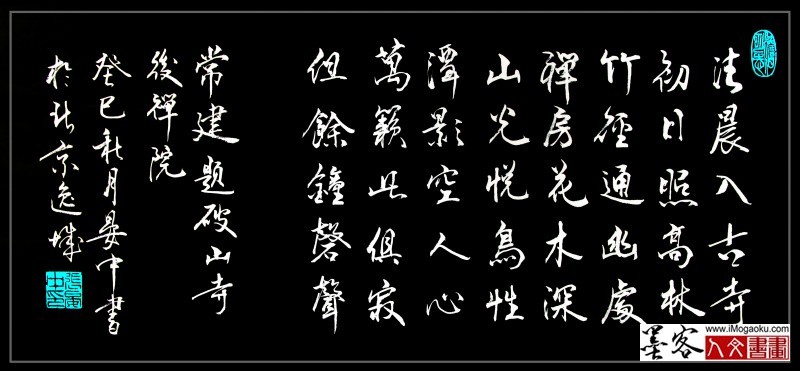 清晨入古寺
初日照高林
竹徑通幽處
禪房花木深
山光悅鳥性
潭影空人心
萬籟此俱寂
但餘鐘磬聲
常建題破山寺
後禪院
癸巳秋月晏中書
於北京逸城
墨客
www.iMogaoku.com
人文書畫